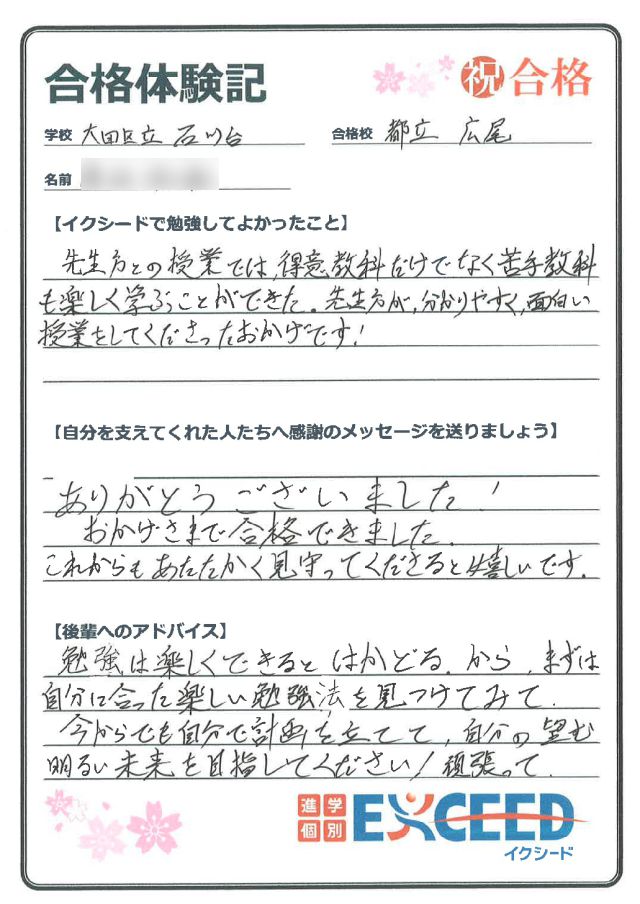 合格体験記
祝 合格
学校 大田区立 石川台
合格校 都立 広尾
名前
【イクシードで勉強してよかったこと】
先生方との授業では、得意教科だけでなく苦手教科
も楽しく学ぶことができた。先生方が、分かりやすく、面白い
授業をしてくださったおかげです!
【自分を支えてくれた人たちへ感謝のメッセージを送りましょう】
ありがとうございました!
おかげさまで合格できました。
これからもあたたかく見守ってくださると嬉しいです。
【後輩へのアドバイス】
勉強は楽しくできるとはかどる。から、まずは
自分に合った楽しい勉強法を見つけてみて。
今からでも自分で計画を立てて、自分の望む
明るい未来を目指してください!頑張って。
進学
個別
EXCEED
イクシード